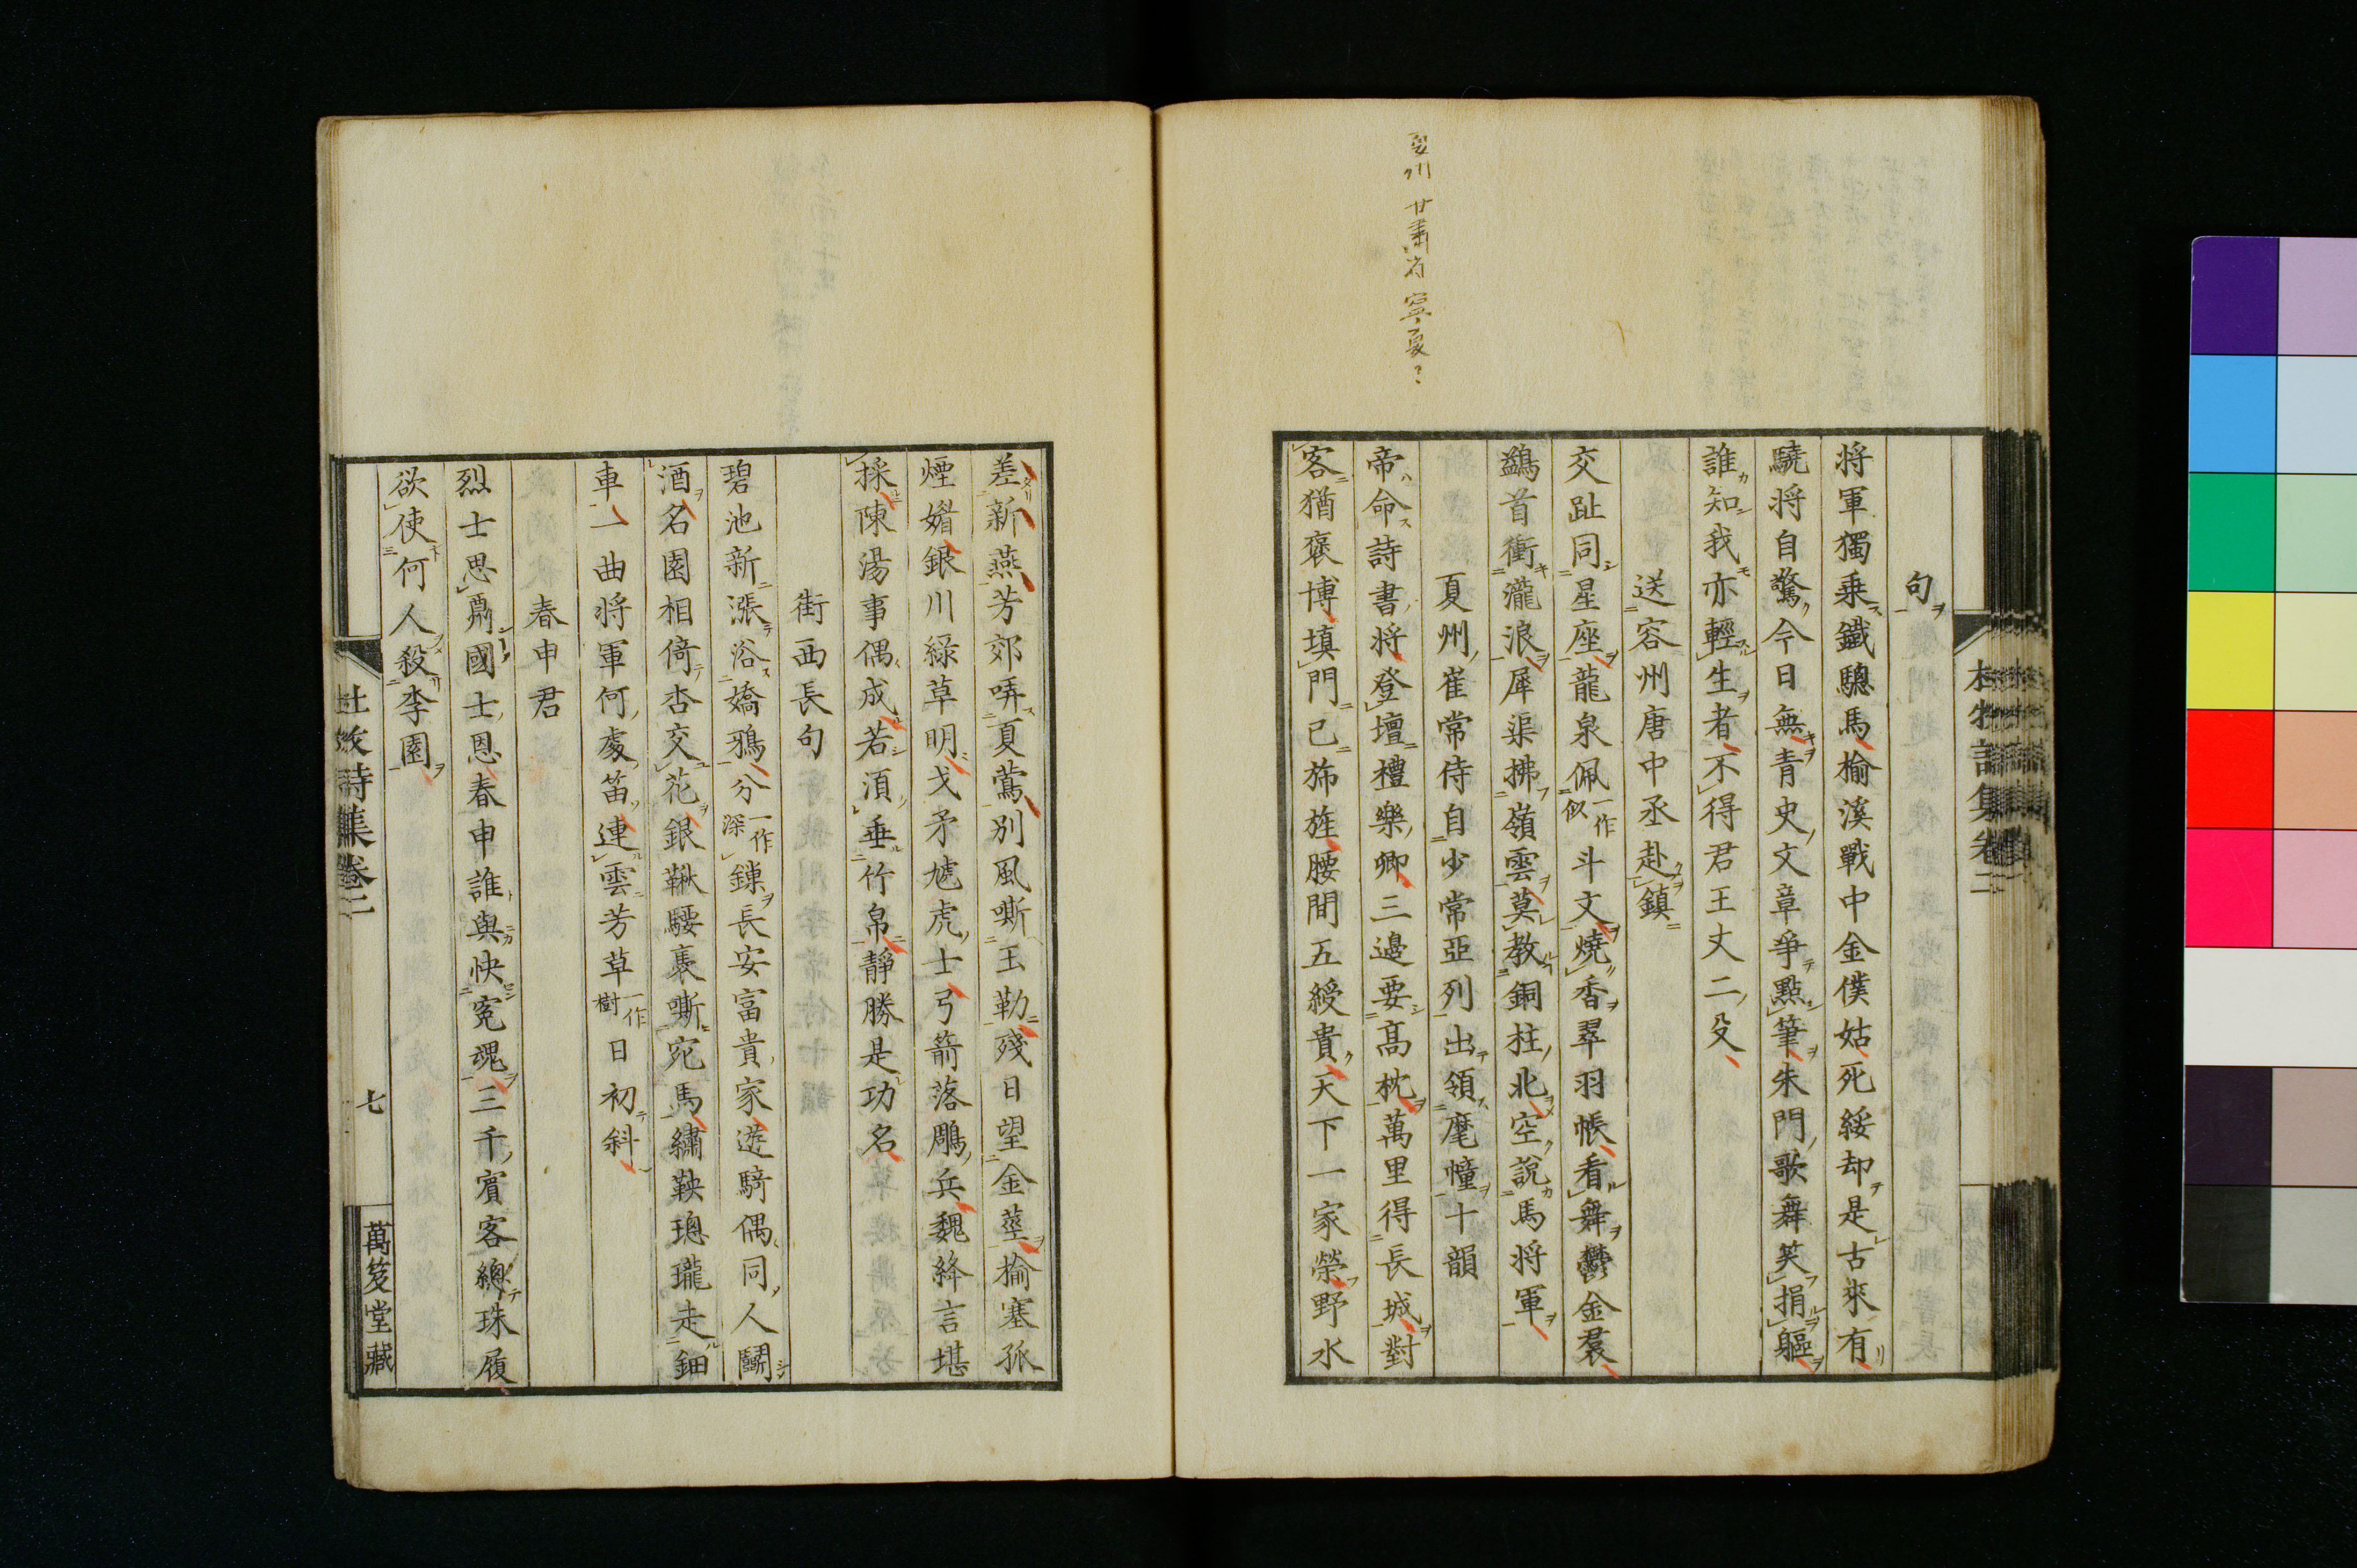 夏州 甘肅省 寧夏?
句
将軍獨乗鐵驄馬榆溪戰中金僕姑死綏却是古來有
驍将自驚今日無青史文章爭點筆朱門歌舞笑捐軀
誰知我亦輕生者不得君王丈二殳
送容州唐中丞赴鎮
交趾同星座龍泉佩一作似斗文燒香翠羽帳看舞鬱金裠
鷁首衝瀧浪犀渠拂嶺雲莫教銅柱北空說馬将軍
夏州崔常侍自少常亞列出領麾幢十韻
帝命詩書将登壇禮樂卿三邊要高枕萬里得長城對
客猶褒博填門已旆旌腰間五綬貴天下一家榮野水
差新燕芳郊哢夏鶯別風嘶玉勒殘日望金莖榆塞孤
煙媚銀川緑草明戈矛虓虎士弓箭落鵰兵魏絳言堪
採陳湯事偶成若湏垂竹帛靜勝是功名
街西長句
碧池新漲浴嬌鴉分一作深鏁長安富貴家遊騎偶同人鬭
酒名園相倚杏交花銀鞦騕褭嘶宛馬繡鞅璁瓏走鈿
車一曲将軍何處笛連雲芳草一作樹日初斜
春申君
烈士思酬國士恩春申誰與快寃魂三千賓客總珠履
欲使何人殺李園
杜牧詩集卷二
七
萬笈堂藏